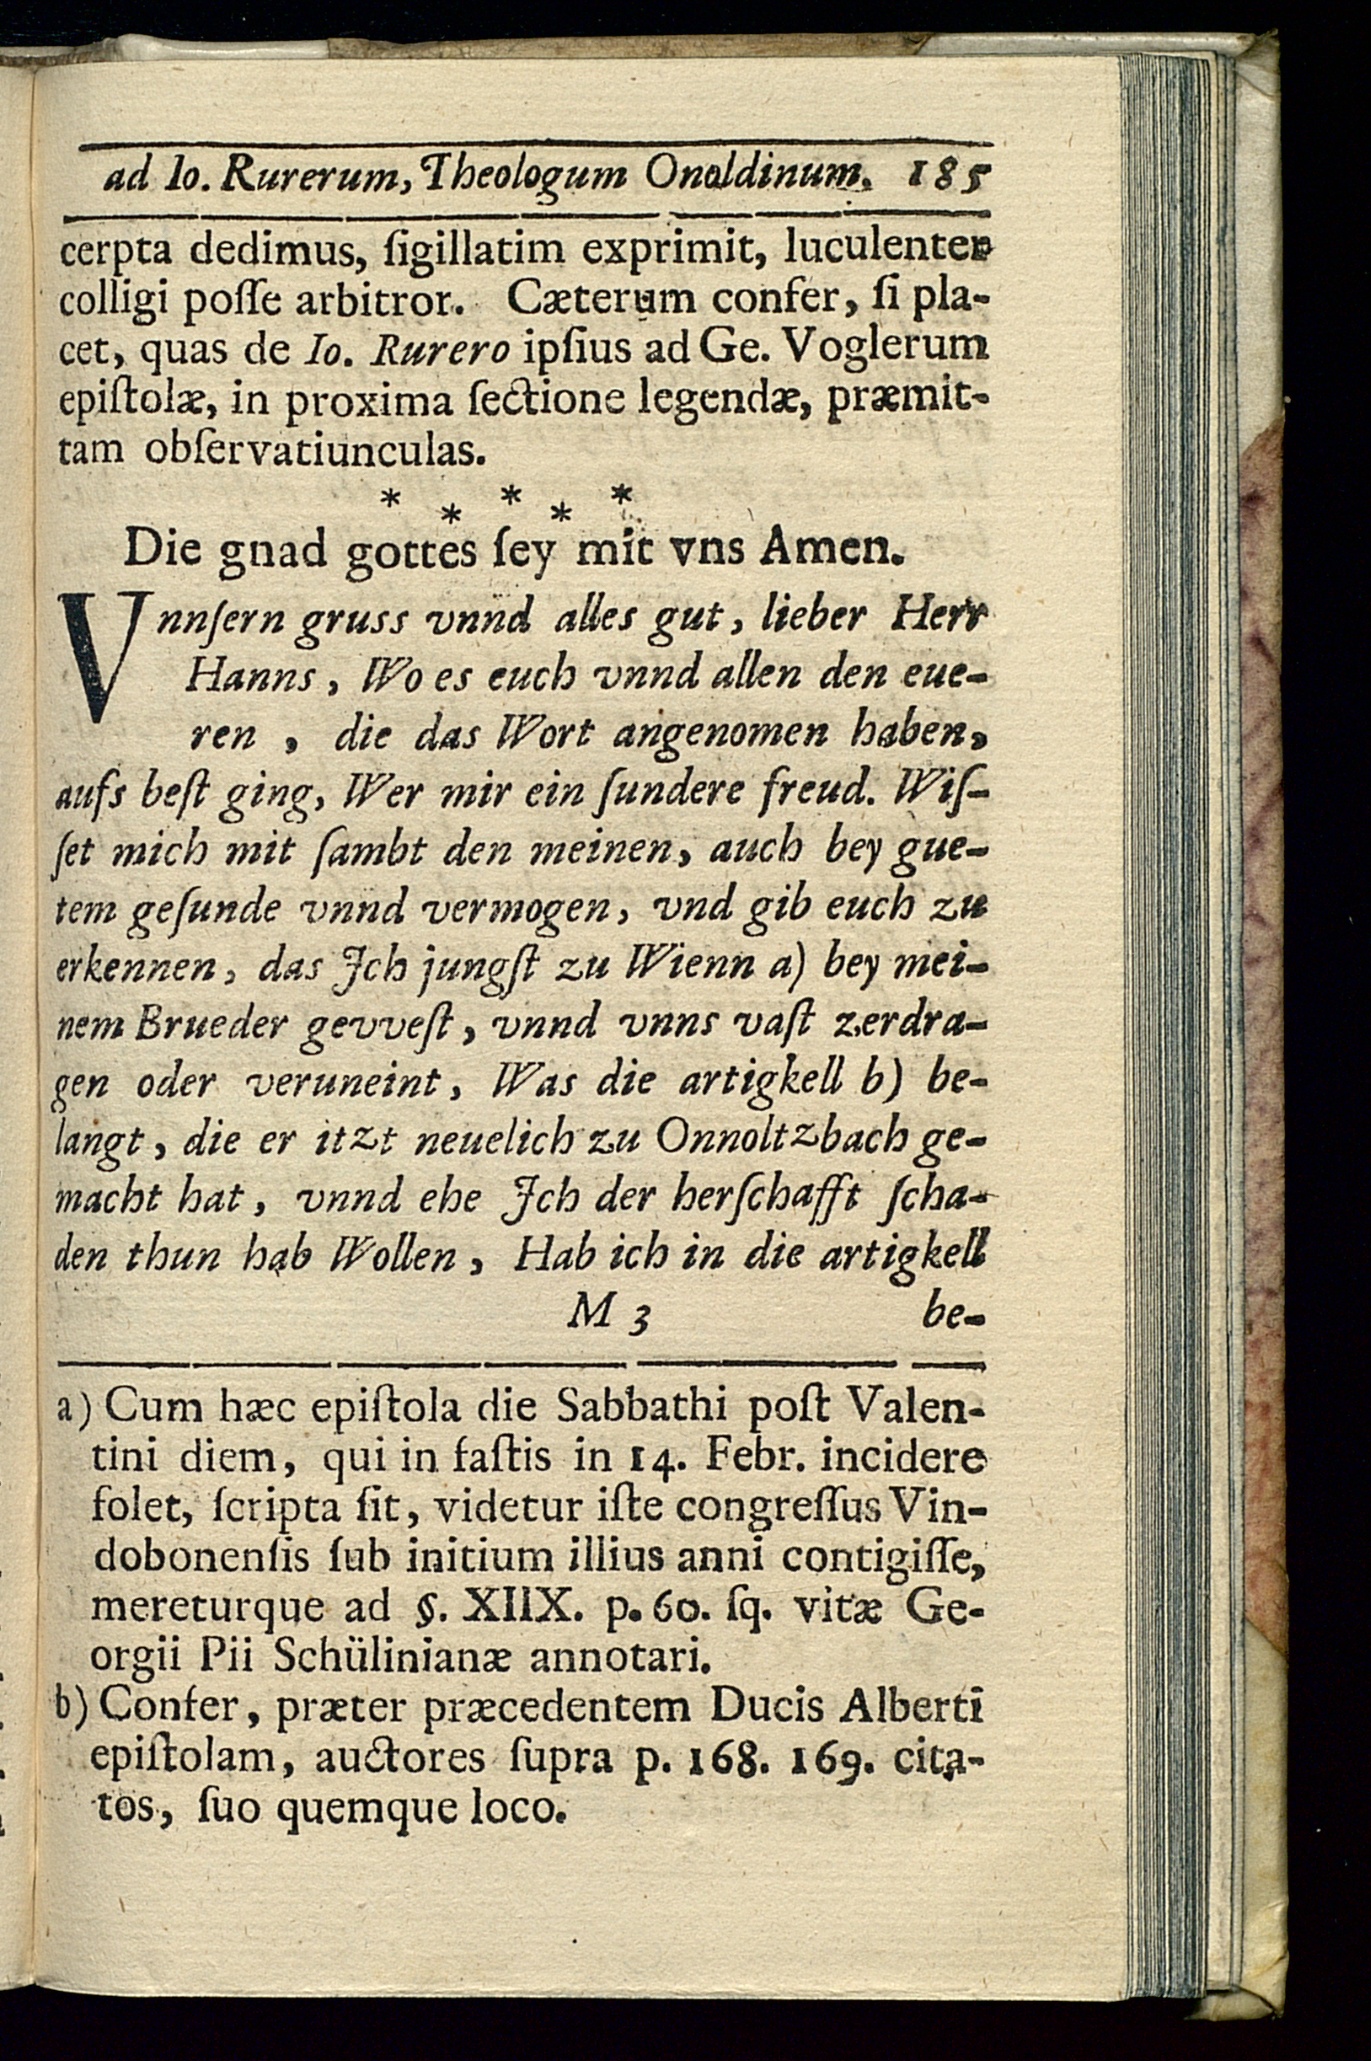 ad Io. Rurerum, Theologum Onoldinum. 185
cerpta dedimus, ſigillatim exprimit, luculenter
colligi poſſe arbitror. Cæterum confer, ſi pla-
cet, quas de Io. Rurero ipſius ad Ge. Voglerum
epiſtolæ, in proxima ſectione legendæ, præmit-
tam obſervatiunculas.
* * * * *
Die gnad gottes ſey mit vns Amen.
Vnnſern gruss vnnd alles gut, lieber Herr
Hanns, Wo es euch vnnd allen den eue-
ren , die das Wort angenomen haben,
aufs beſt ging, Wer mir ein ſundere freud. Wiſ-
ſet mich mit ſambt den meinen, auch bey gue-
tem geſunde vnnd vermogen, vnd gib euch zu
erkennen, das Jch jungſt zu Wienn a) bey mei-
nem Brueder gevveſt, vnnd vnns vaſt zerdra-
gen oder veruneint, Was die artigkell b) be-
langt, die er itzt neuelich zu Onnoltzbach ge-
macht hat, vnnd ehe Jch der herſchafft ſcha-
den thun hab Wollen, Hab ich in die artigkell
M 3 be-
a) Cum hæc epiſtola die Sabbathi poſt Valen-
tini diem, qui in faſtis in 14. Febr. incidere
ſolet, ſcripta ſit, videtur iſte congreſſus Vin-
dobonenſis ſub initium illius anni contigiſſe,
mereturque ad §. XIIX. p. 60. ſq. vitæ Ge-
orgii Pii Schülinianæ annotari.
b) Confer, præter præcedentem Ducis Alberti
epiſtolam, auctores ſupra p. 168. 169. cita-
tos, ſuo quemque loco.